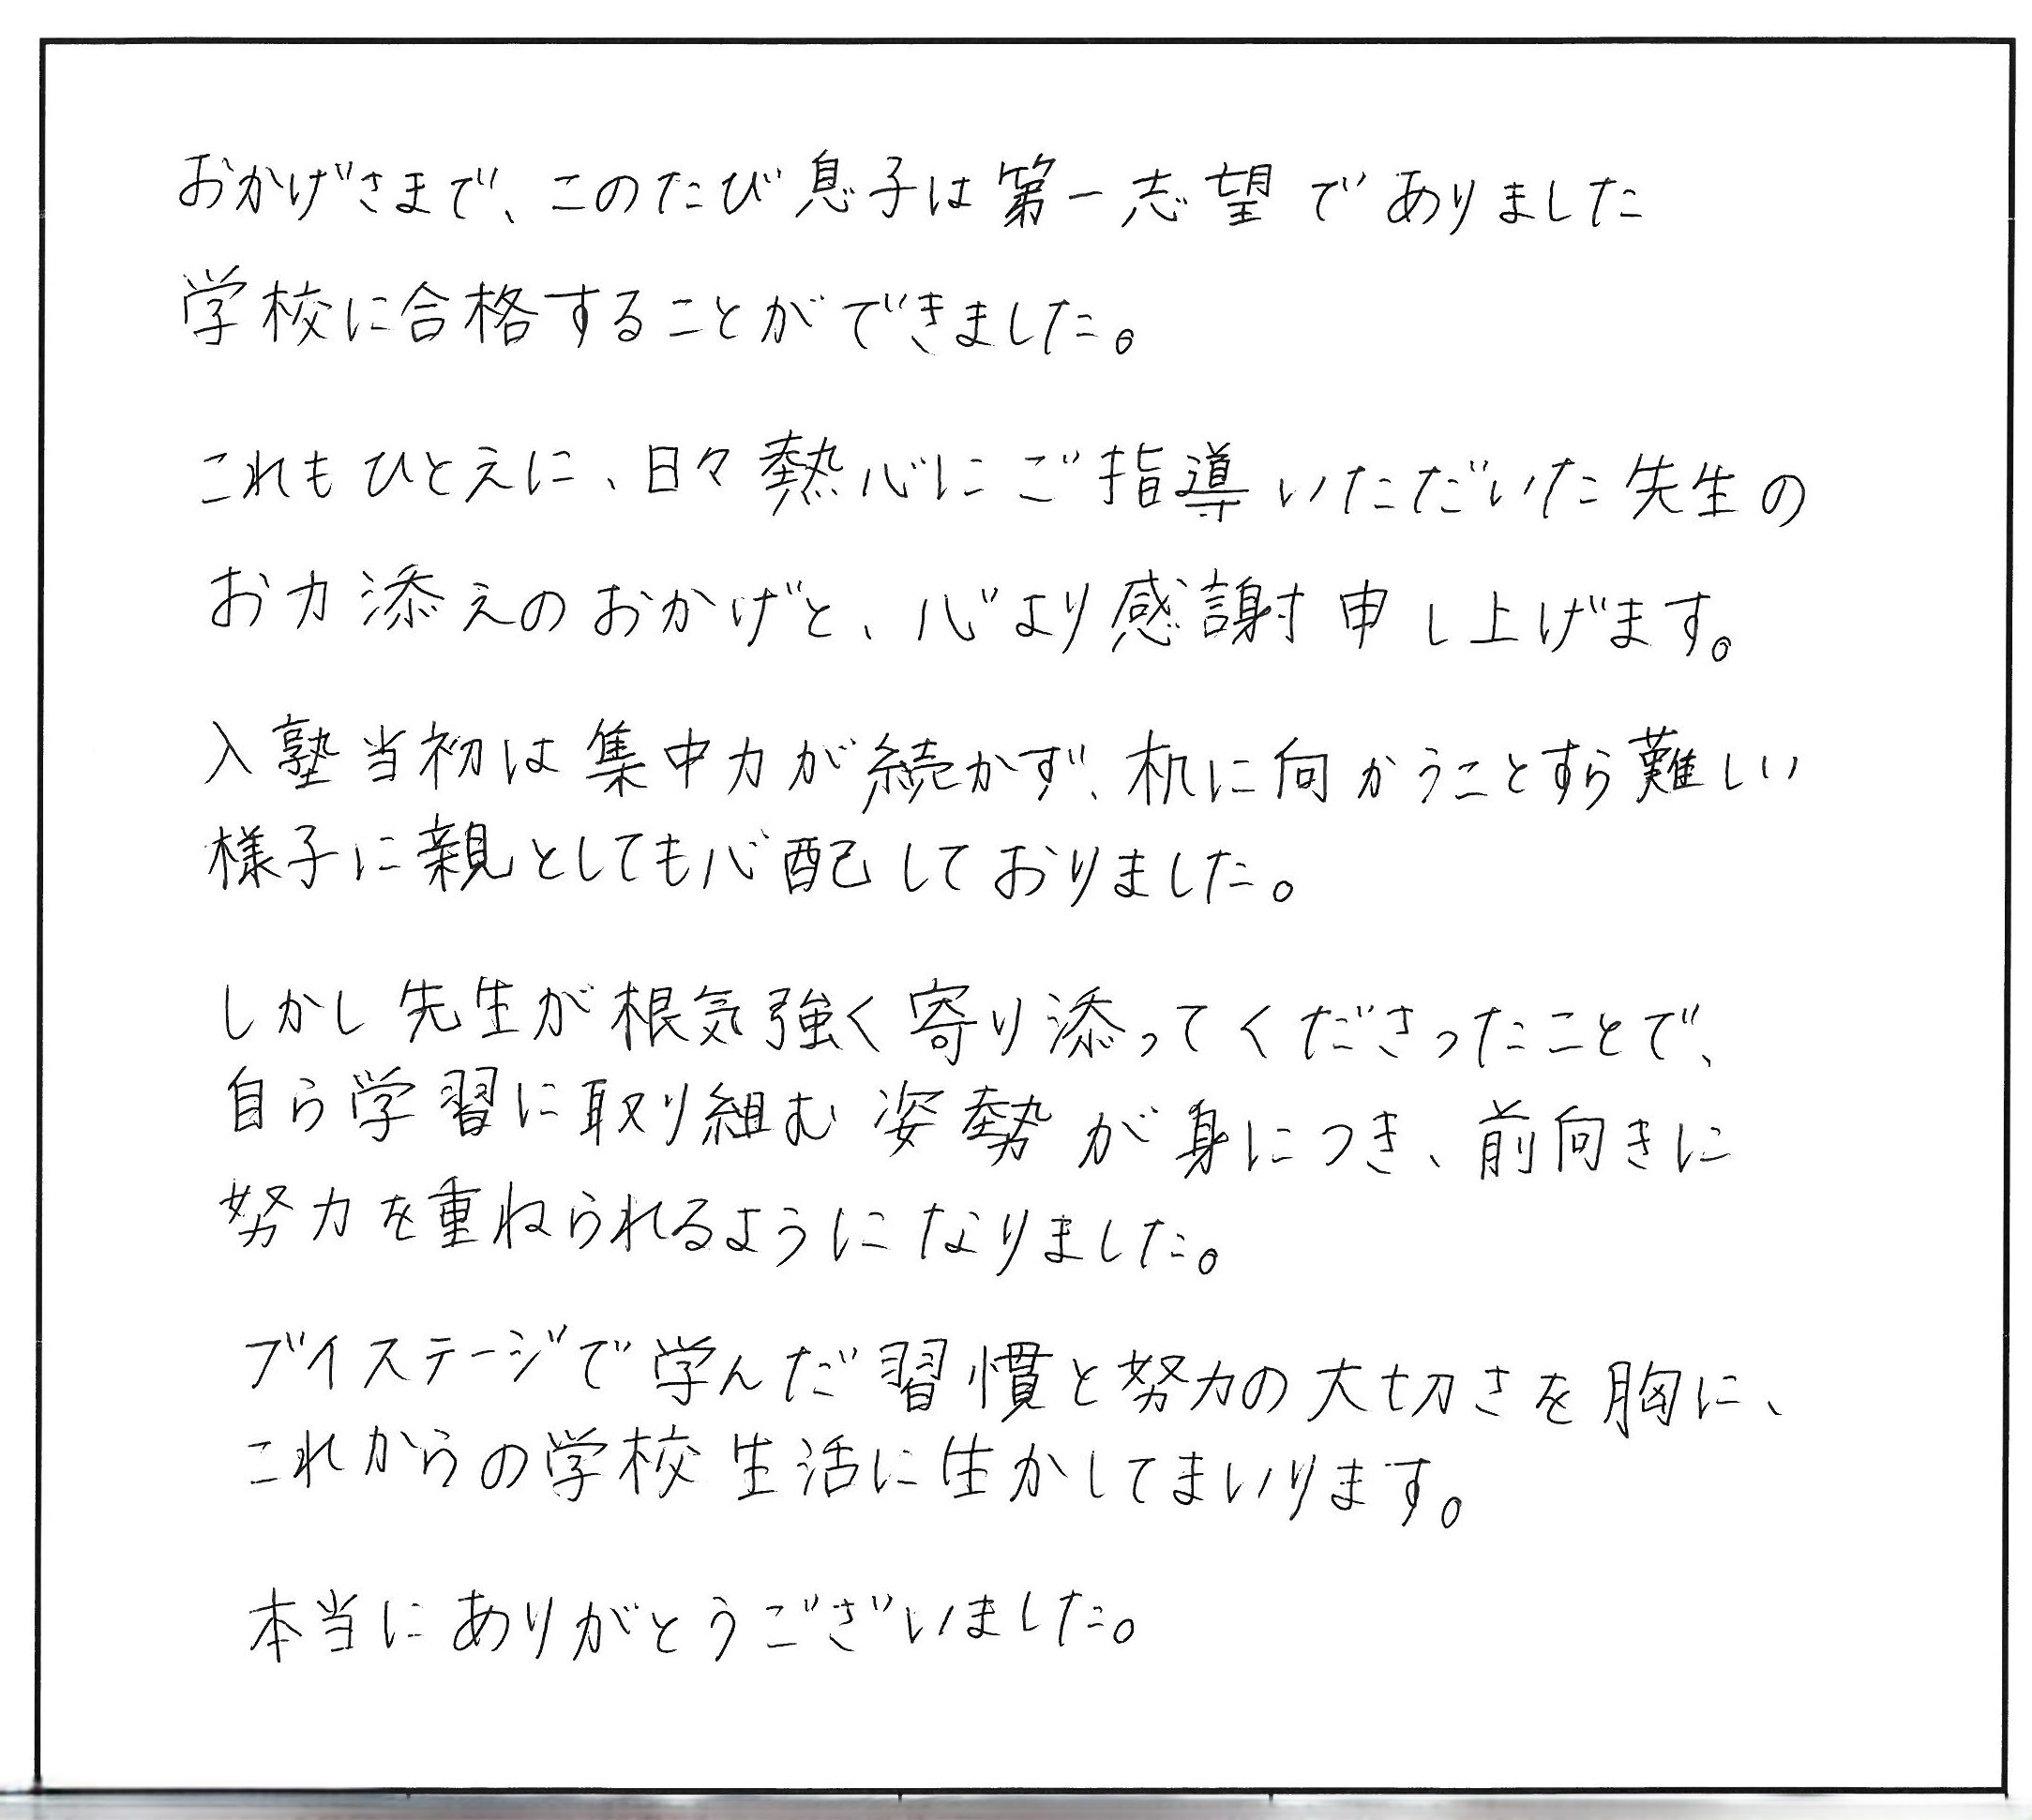 おかげさまで、このたび息子は第一志望でありました
学校に合格することができました。
これもひとえに、日々熱心にご指導いただいた先生の
お力添えのおかげと、心より感謝申し上げます。
入塾当初は集中力が続かず、机に向かうことすら難しい
様子に親としても心配しておりました。
しかし先生が根気強く寄り添ってくださったことで、
自ら学習に取り組む姿勢が身につき、前向きに
努力を重ねられるようになりました。
ブイステージで学んだ習慣と努力の大切さを胸に、
これからの学校生活に生かしてまいります。
本当にありがとうございました。